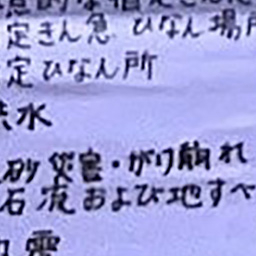 定きん急 ひなん場所
定ひなん所
洪水
砂災害・がけ崩れ
石流および地すべ